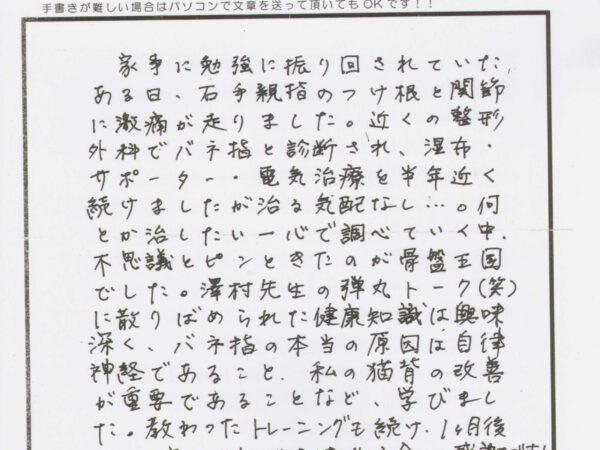 手書きが難しい場合はパソコンで文章を送って頂いてもOKです！！
家事に勉強に振り回されていた
ある日、右手親指のつけ根と関節
に激痛が走りました。近くの整形
外科でバネ指と診断され、湿布・
サポーター・電気治療を半年近く
続けましたが治る気配なし…。何
とか治したい一心で調べていく中、
不思議とピンときたのが骨盤王国
でした。澤村先生の弾丸トーク(笑)
に散りばめられた健康知識は興味
深く、バネ指の本当の原因は自律
神経であること、私の猫背の改善
が重要であることなど、学びまし
た。教わったトレーニングも続け、1ヶ月後